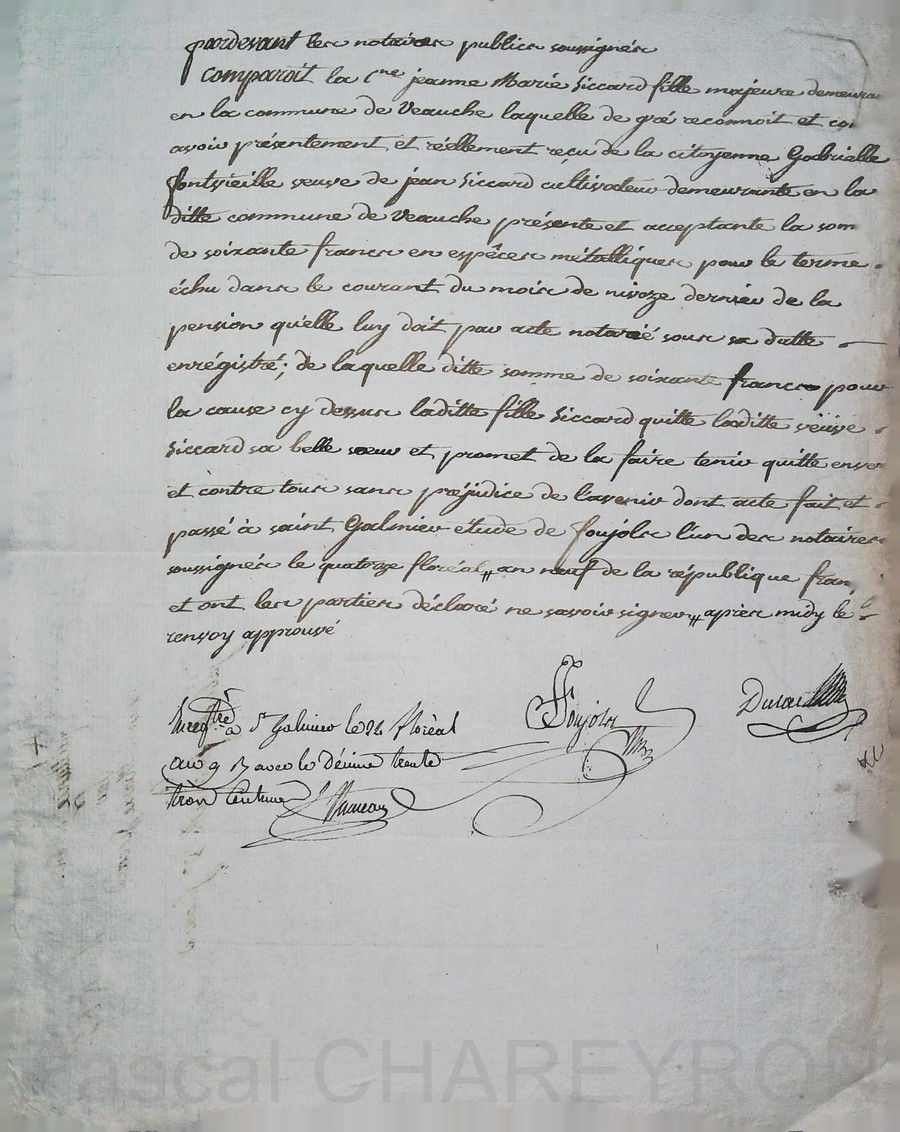 pardevant les notaires publics soussignés
comparoit la Cne jeanne Marie Siccard fille majeure demeura
en la commune de Veauche laquelle de gré reconnoit et co
avoir présentement et réellement reçu de la citoyenne Gabrielle
fontvieille veuve de jean Siccard cultivateur demeurante en la
ditte commune de Veauche présente et acceptante la som
de soixante francs en espêces métalliques pour le terme
échu dans le courant du mois de nivoze dernier de la
pension qu'elle luy doit par acte notarié sous sa datte
enrégistré; de laquelle ditte somme de soixante francs pour
la cause cy dessus laditte fille Siccard quitte laditte veüve
Siccard sa belle sœur et promet de la faire tenir quitte enver
et contre tous sans préjudice de l'avenir dont acte fait et
passé à saint Galmier étude de foujols l'un des notaires
soussignés le quatorze floréal,, an neuf de la république fran
et ont les parties déclaré ne savoir signer,, après midy le
renvoy approuvé
Enregtré à St Galmier le 22 floréal
an 9 avec le Décime trente
trois Centimes
foujols
Pascal CHAREYRON